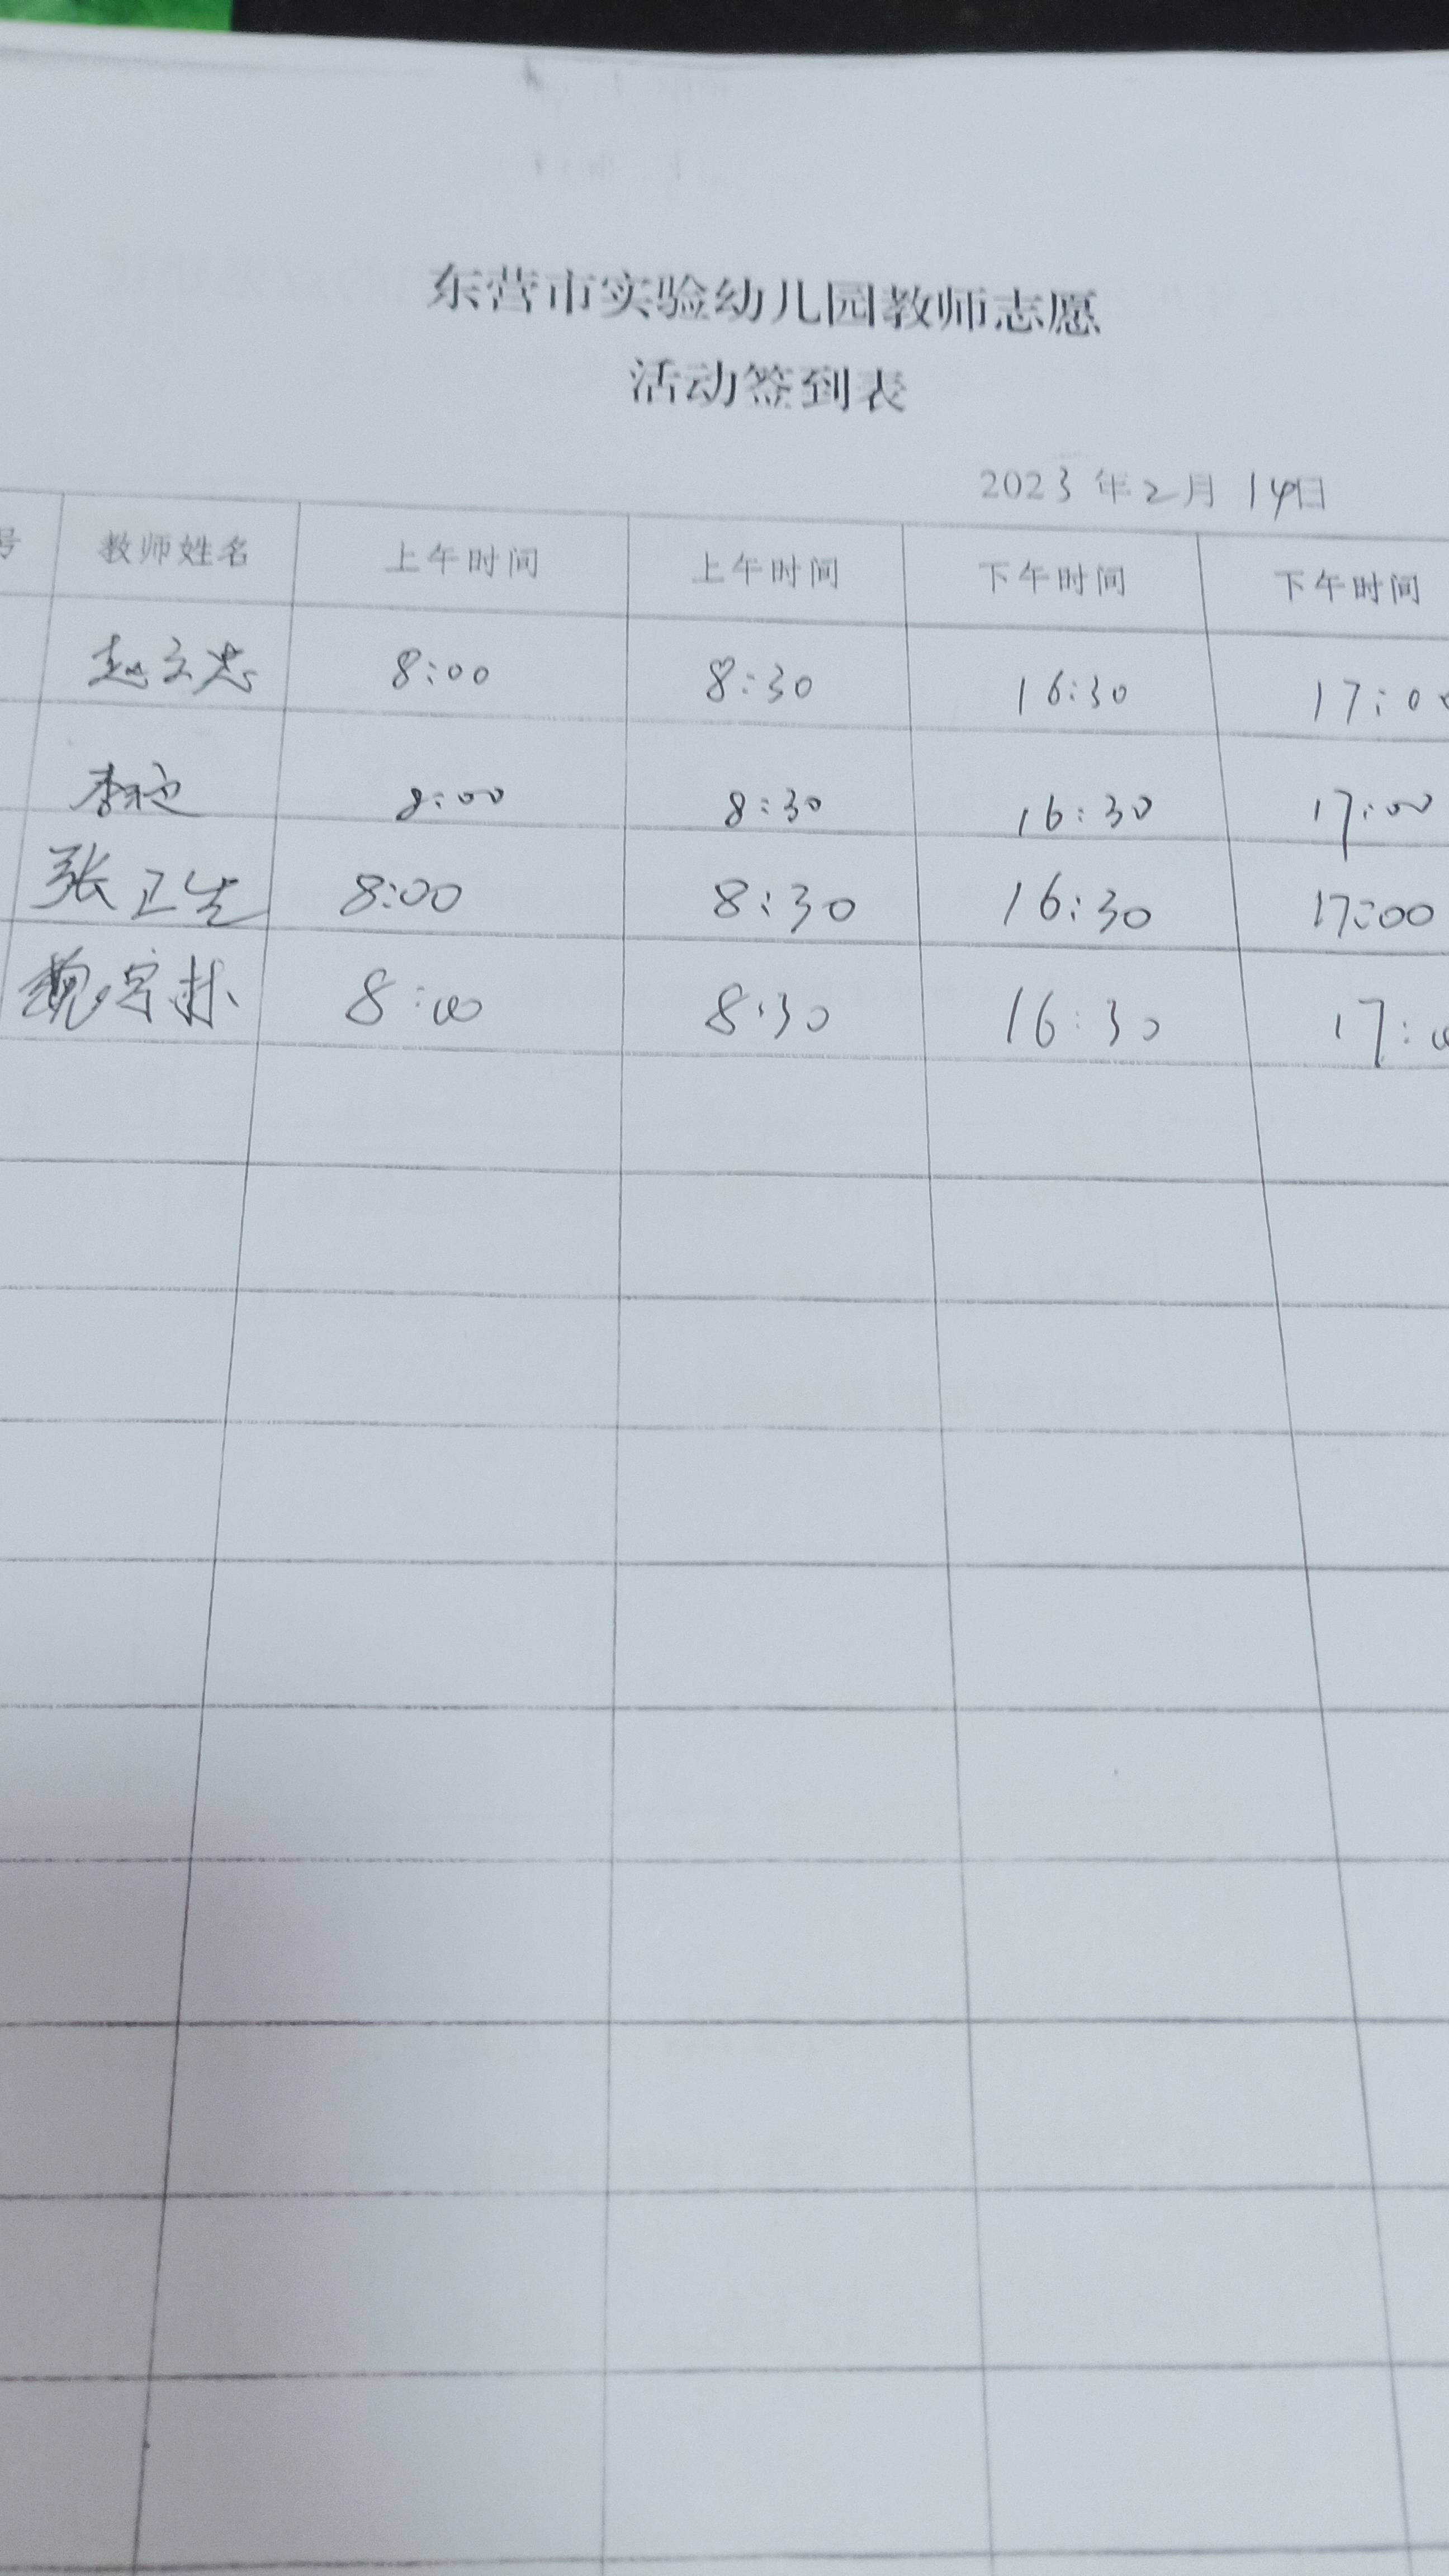 东营市实验幼儿园教师志愿
活动签到表
2023年2月14日
号 教师姓名 上午时间 上午时间 下午时间 下午时间
赵立忠 8:00 8:30 16:30 17:00
李 8:00 8:30 16:30 17:00
张卫生 8:00 8:30 16:30 17:00
魏 林 8:00 8:30 16:30 17:00